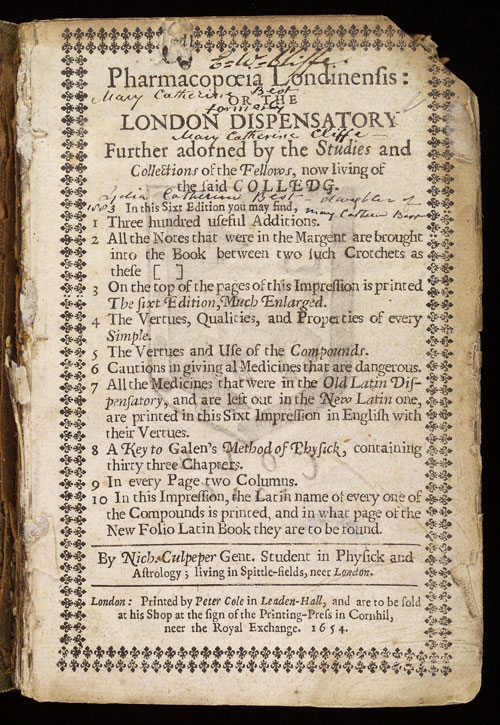 E. M. Cliffe.
Pharmacopœia Londinenſis:
Mary Catherine Best
OR THE
formerly
LONDON DISPENSATORY
Mary Catherine Cliffe
Further adorned by the Studies and
Collections of the Fellows, now living of
the ſaid COLLEDG.
Lydia Catherine Best – daughter of
1883 In this Sixt Edition you may find,
Mary Cathern Best
1 Three hundred uſeful Additions.
2 All the Notes that were in the Margent are brought
into the Book between two ſuch Crotchets as
theſe [ ]
3 On the top of the pages of this Impreſſion is printed
The ſixt Edition, Much Enlarged.
4 The Vertues, Qualities, and Properties of every
Simple.
5 The Vertues and Uſe of the Compounds.
6 Cautions in giving al Medicines that are dangerous.
7 All the Medicines that were in the Old Latin Diſ-
penſatory, and are left out in the New Latin one,
are printed in this Sixt Impreſſion in Engliſh with
their Vertues.
8 A Key to Galen's Method of Phyſick, containing
thirty three Chapters.
9 In every Page two Columns.
10 In this Impreſſion, the Latin name of every one of
the Compounds is printed, and in what page of the
New Folio Latin Book they are to be found.
By Nich. Culpeper Gent. Student in Phyſick and
Aſtrology; living in Spittle-fields, neer London.
London: Printed by Peter Cole in Leaden-Hall, and are to be ſold
at his Shop at the ſign of the Printing-Preſs in Cornhil,
neer the Royal Exchange. 1654.